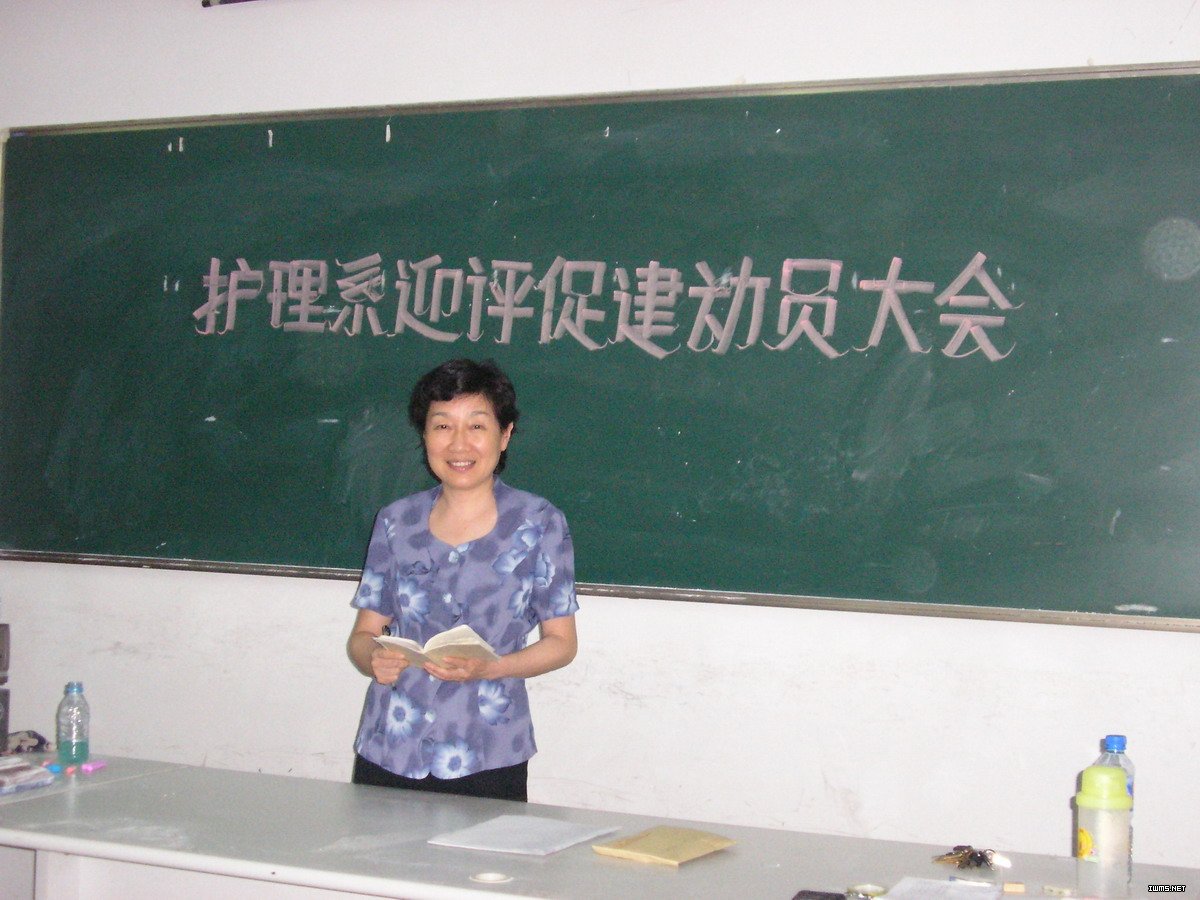 护理系迎评促建动员大会
IWMS.NET